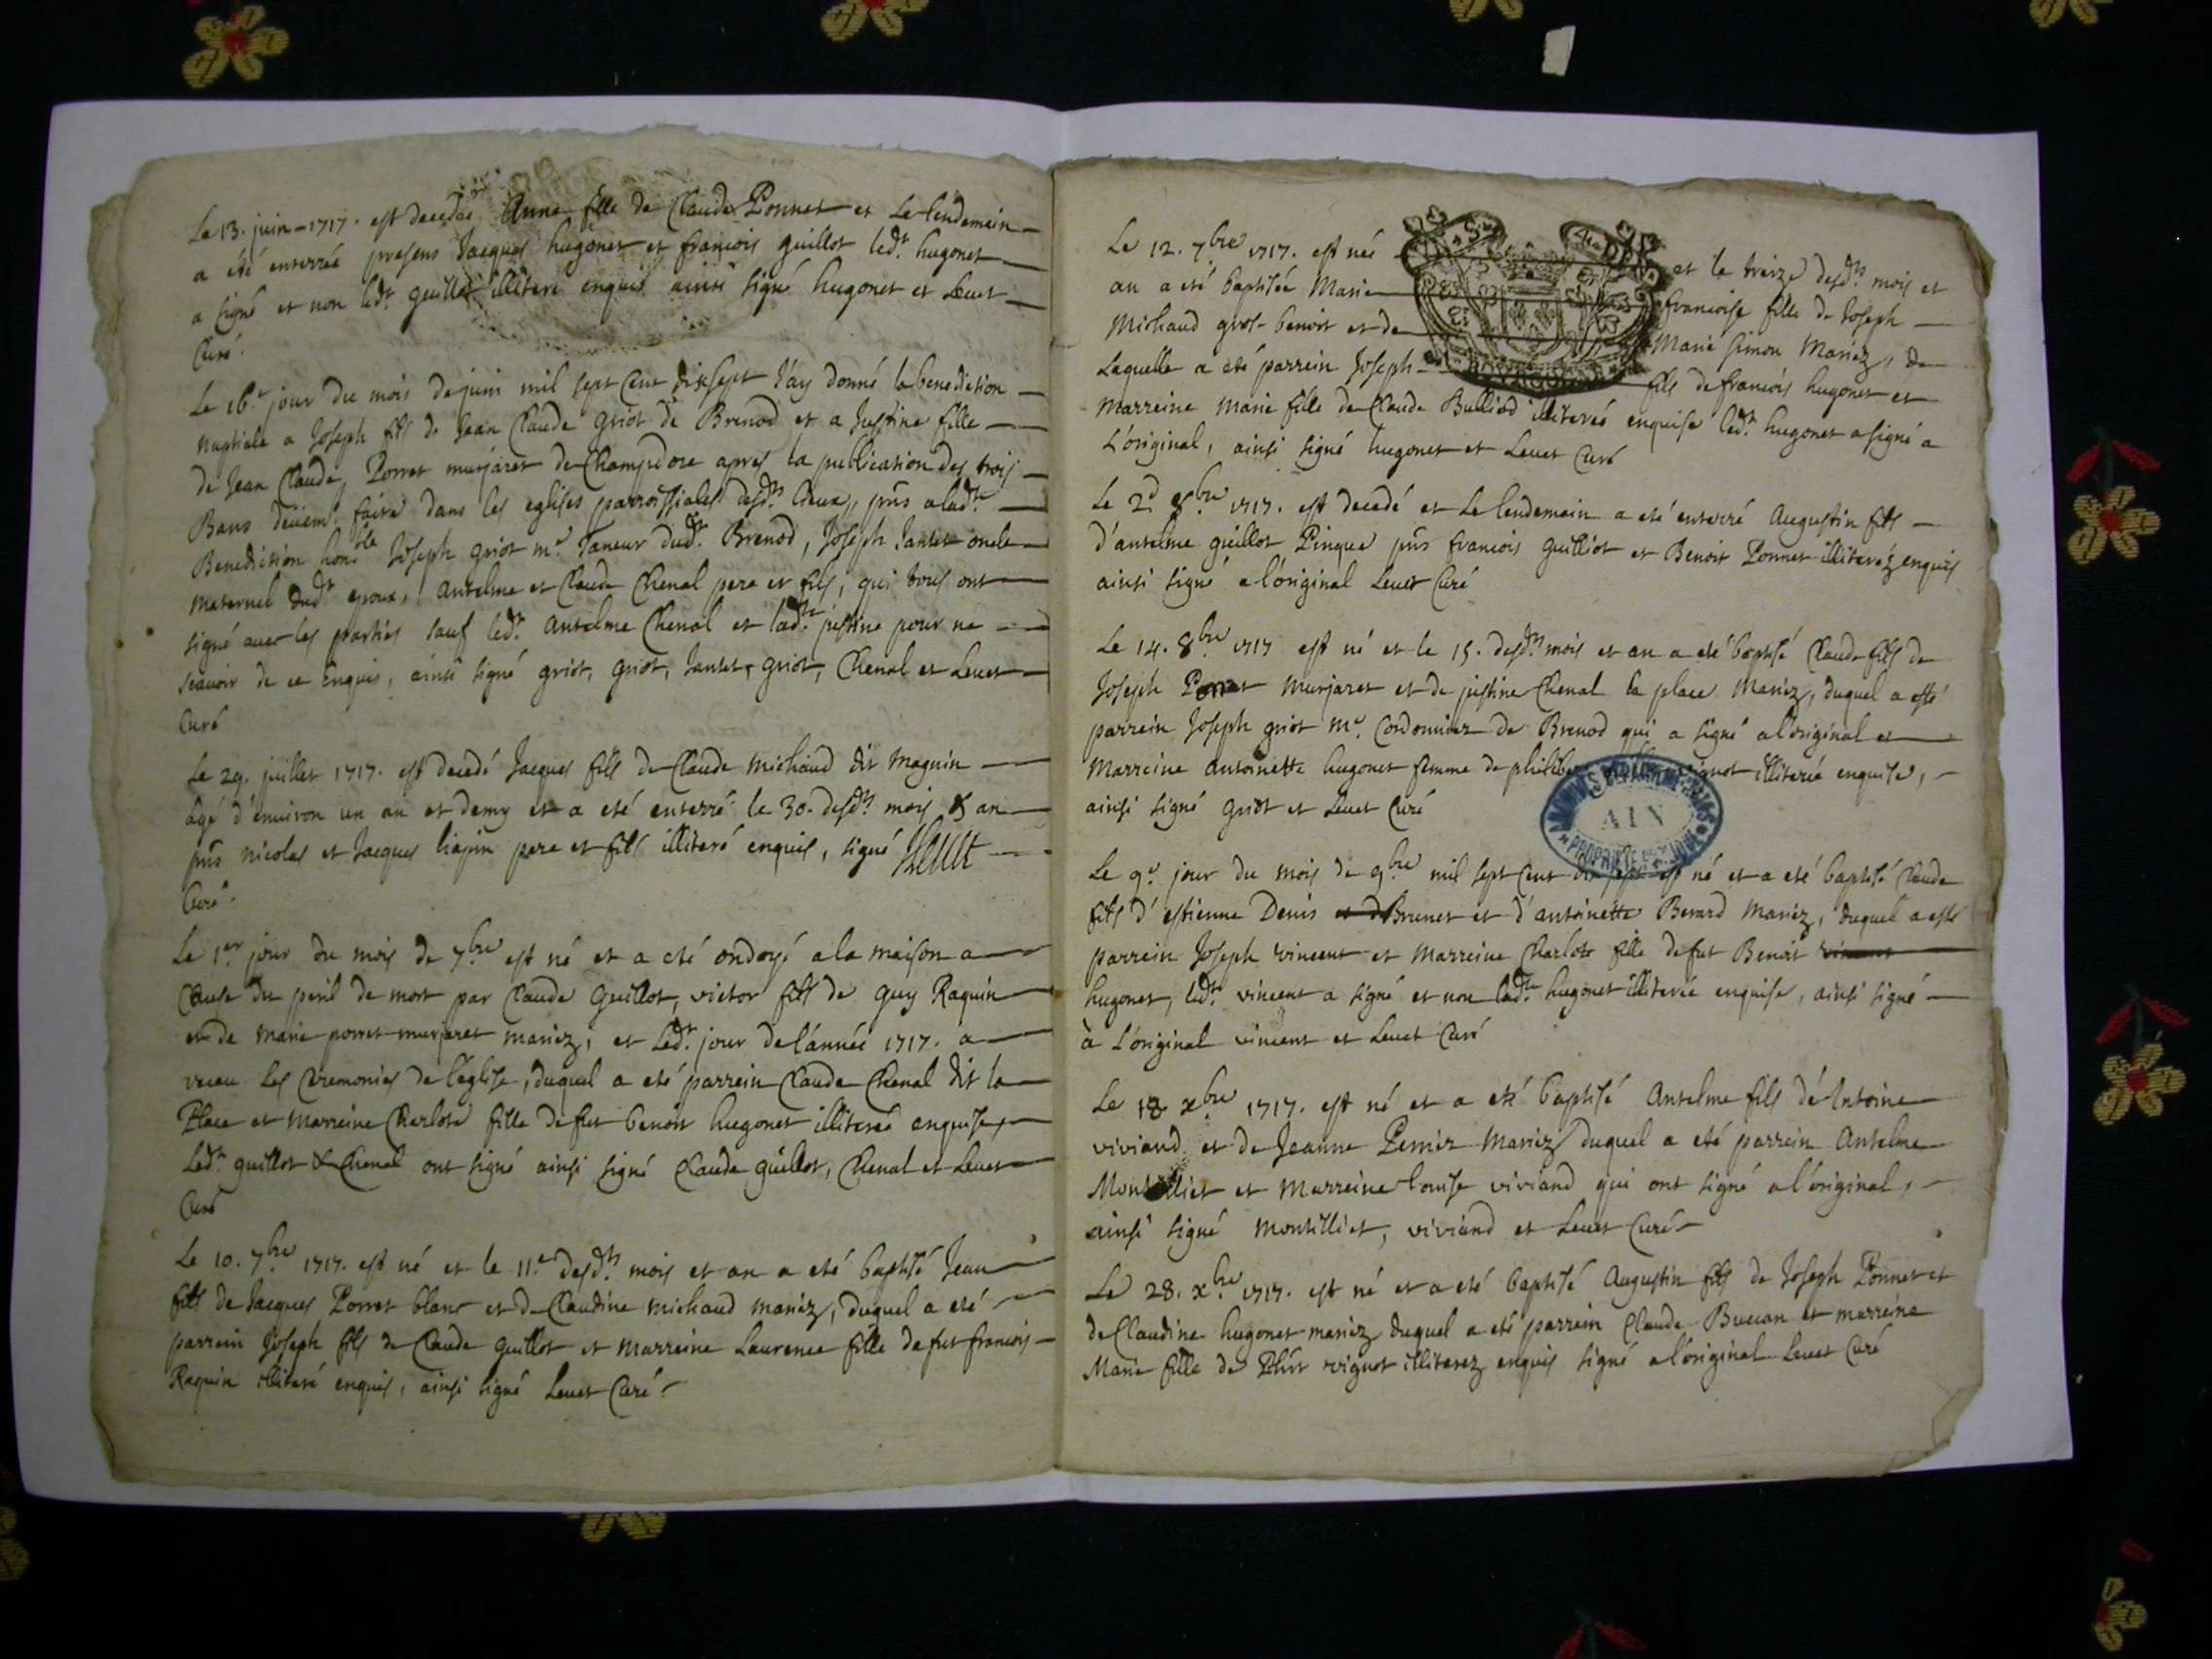 Le 13. juin - 1717. est decedée Anne fille de Claude Ponnet et Le lendemain
a été enterrée presens Jacques hugonet et francois guillot led.t hugonet
a signé et non led.t guillot illiteré enquis ainsi signé hugonet et Levet
Curé.
Le 16.e jour du mois de juin mil sept Cent dix sept J'ay donné la benediction
nuptiale a Joseph fils de Jean Claude griot de Brenod et a Justine fille
de Jean Claude Porret murjaret de Champdore apres la publication des trois
Bans deüem.t faite dans les eglises parroissiales desd.ts lieux, pns a lad.te
Benediction hon.ble Joseph griot m.e Taneur dud.t Brenod, Joseph Jantet oncle
maternel dud.t epoux, Antelme et Claude Chenal pere et fils, qui tous ont
signé avec les parties sauf led.t Antelme Chenal et lad.te justine pour ne
scavoir de ce enquis, ainsi signé griot, griot, Jantet, griot, Chenal et Levet
Curé
Le 29. juillet 1717. est decedé Jacques fils de Claude michaud dit magnin
âgé d'environ un an et demy et a eté enterré le 30. desd.ts mois & an
pns nicolas et Jacques pere et fils illiteré enquis, signé Levet
Curé.
Le 1.er jour du mois de 7.bre est né et a eté ondoyé a la maison a
Cause du peril de mort par Claude Guillot, victor fils de guy Raquin
et de marie porret murjaret mariez, et Led.t jour de l'année 1717. a
receu Les Ceremonies de l'eglise, duquel a eté parrein Claude Chenal dit la
Place et marreine Charlote fille de fut benoit hugonet illiterée enquise,
Led.t guillot & Chenal ont signé ainsi signé Claude guillot, Chenal et Levet
Curé
Le 10. 7.bre 1717. est né et le 11.e desd.ts mois et an a eté baptisé Jean
fils de Jacques Porret blanc et de Claudine michaud mariez, duquel a eté
parrein Joseph fils de Claude guillot et marreine Laurence fille de fut francois
Raquin illiteré enquis, ainsi signé Levet Curé
Le 12. 7.bre 1717. est née et le treize desd.ts mois et
an a eté baptisée Marie francoise fille de Joseph
Michaud gros-benoit et de Marie Simon Mariez, de
Laquelle a eté parrein Joseph fils de francois hugonet et
Marreine Marie fille de Claude Bulliod illiterée enquise led.t hugonet a signé a
L'original, ainsi signé hugonet et Levet Curé
Le 2.d 8.bre 1717. est decedé et Le lendemain a eté enterré Augustin fils
d'antelme guillot Pinque pns francois guilliot et Benoit Ponnet illiterez enquis
ainsi signé a l'original Levet Curé
Le 14. 8.bre 1717 est né et le 15. desd.ts mois et an a eté baptisé Claude fils de
Joseph Porret Murjaret et de justine Chenal la place Mariez, duquel a esté
parrein Joseph griot m.e Cordonnier de Brenod qui a signé a l'original et
Marreine Antoinette hugonet femme de vignot illiterée enquise,
ainsi signé griot et Levet Curé
ARCHIVES
AIN
PROPRIÉTÉ PUBLIQUE
Le 9.e jour du mois de 9.bre mil sept Cent dix sept est né et a eté baptisé Claude
fils d'estienne Denis et d Brunet et d'antoinette Berard Mariez, duquel a esté
parrein Joseph vincent et Marreine Charlote fille de fut Benoit vincent
hugonet, led.t vincent a signé et non lad.te hugonet illiterée enquise, ainsi signé
à L'original vincent et Levet Curé
Le 18 x.bre 1717. est né et a eté baptisé Antelme fils d'Antoine
viviand et de Jeanne Pernier Mariez duquel a eté parrein Antelme
Montilliet et marreine louise viviand qui ont signé a l'original,
ainsi signé Montilliet, viviand et Levet Curé
Le 28. x.bre 1717. est né et a eté baptisé Augustin fils de Joseph Ponnet et
de Claudine hugonet mariez duquel a eté parrein Claude Buvan et marreine
Marie fille de Phbt vignot illiterez enquis signé a l'original Levet Curé